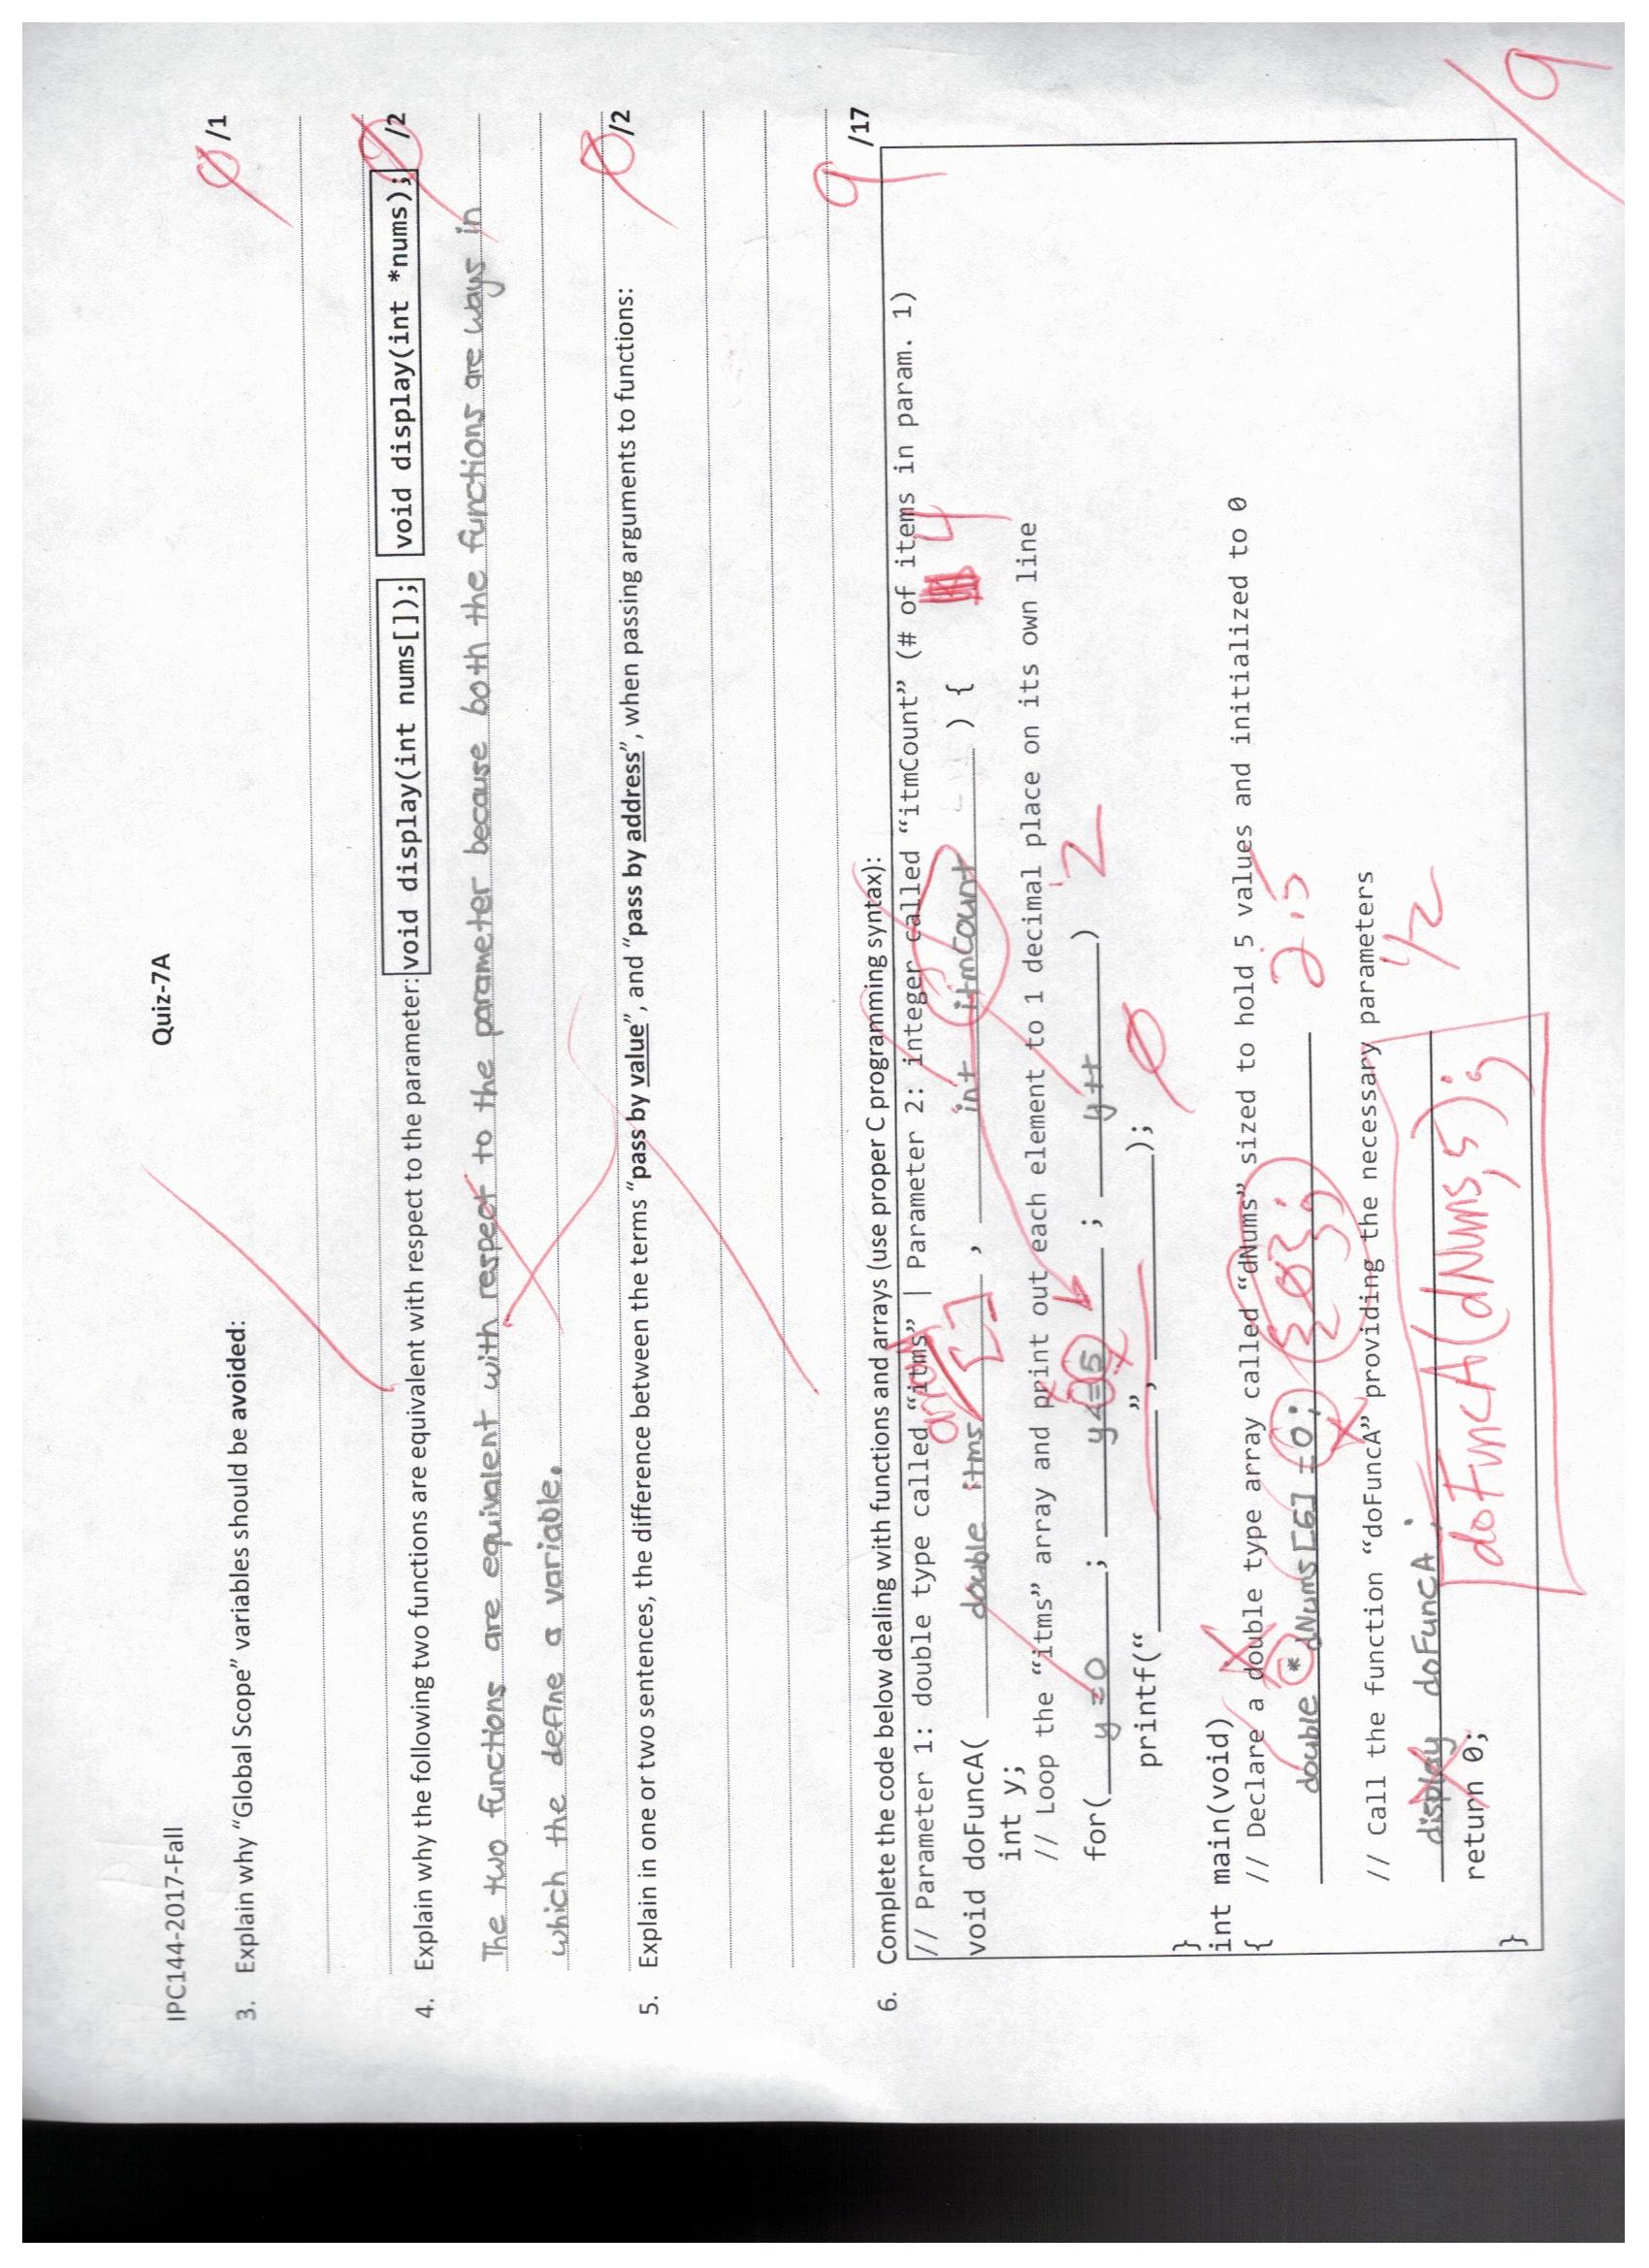 IPC144-2017-Fall
Quiz-7A
3. Explain why “Global Scope” variables should be avoided:
0 /1
4. Explain why the following two functions are equivalent with respect to the parameter: void display(int nums[]); void display(int *nums); 0 /2
The two functions are equivalent with respect to the parameter because both the functions are ways in
which the define a variable.
5. Explain in one or two sentences, the difference between the terms “pass by value”, and “pass by address”, when passing arguments to functions: 0 /2
6. Complete the code below dealing with functions and arrays (use proper C programming syntax): 9 /17
// Parameter 1: double type called “itms” | Parameter 2: integer called “itmCount” (# of items in param. 1)
array
void doFuncA( double itms [ ] , int itmCount ) { 4
int y;
// Loop the “itms” array and print out each element to 1 decimal place on its own line
for( y=0 ; y<=5 ; y++ ) 2
printf(“ ”, ); 0
}
int main(void)
{
// Declare a double type array called “dNums” sized to hold 5 values and initialized to 0
double * dNums[6] = 0; {0}; 2.5
// Call the function “doFuncA” providing the necessary parameters
display doFuncA ; 1/2
doFuncA(dNums,5);
return 0;
}
9